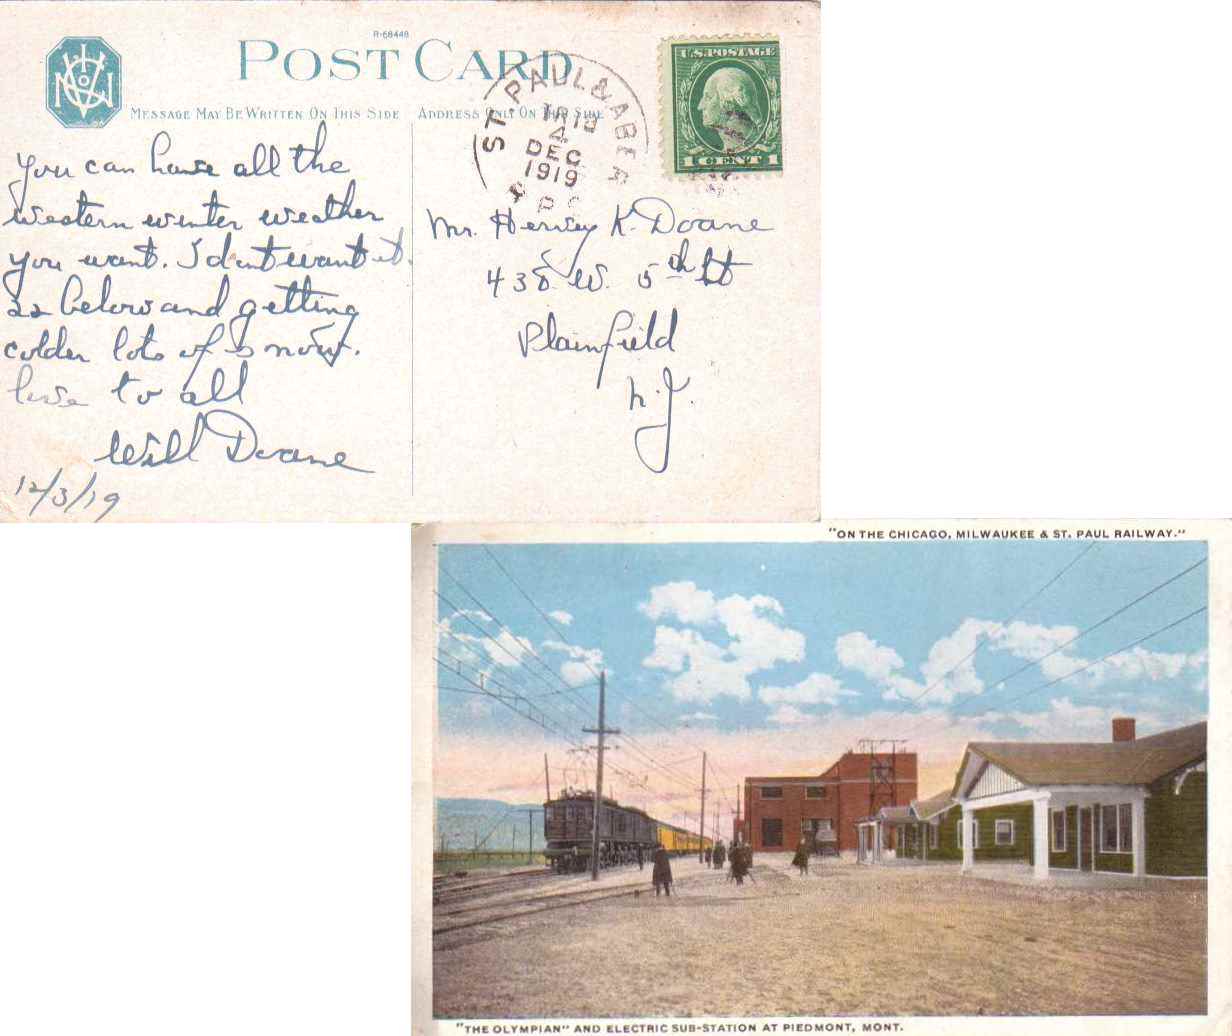 R-68448
POST CARD
MESSAGE MAY BE WRITTEN ON THIS SIDE
ADDRESS ONLY ON THIS SIDE
ST. PAUL & ABER
TR 18
4
DEC
1919
R P O
U.S. POSTAGE
1 CENT 1
You can have all the
western winter weather
you want. I dont want it.
22 below and getting
colder lots of snow.
love to all
Will Doane
12/3/19
Mr. Hervey K. Doane
438 W. 5th St
Plainfield
N.J.
"ON THE CHICAGO, MILWAUKEE & ST. PAUL RAILWAY."
"THE OLYMPIAN" AND ELECTRIC SUB-STATION AT PIEDMONT, MONT.